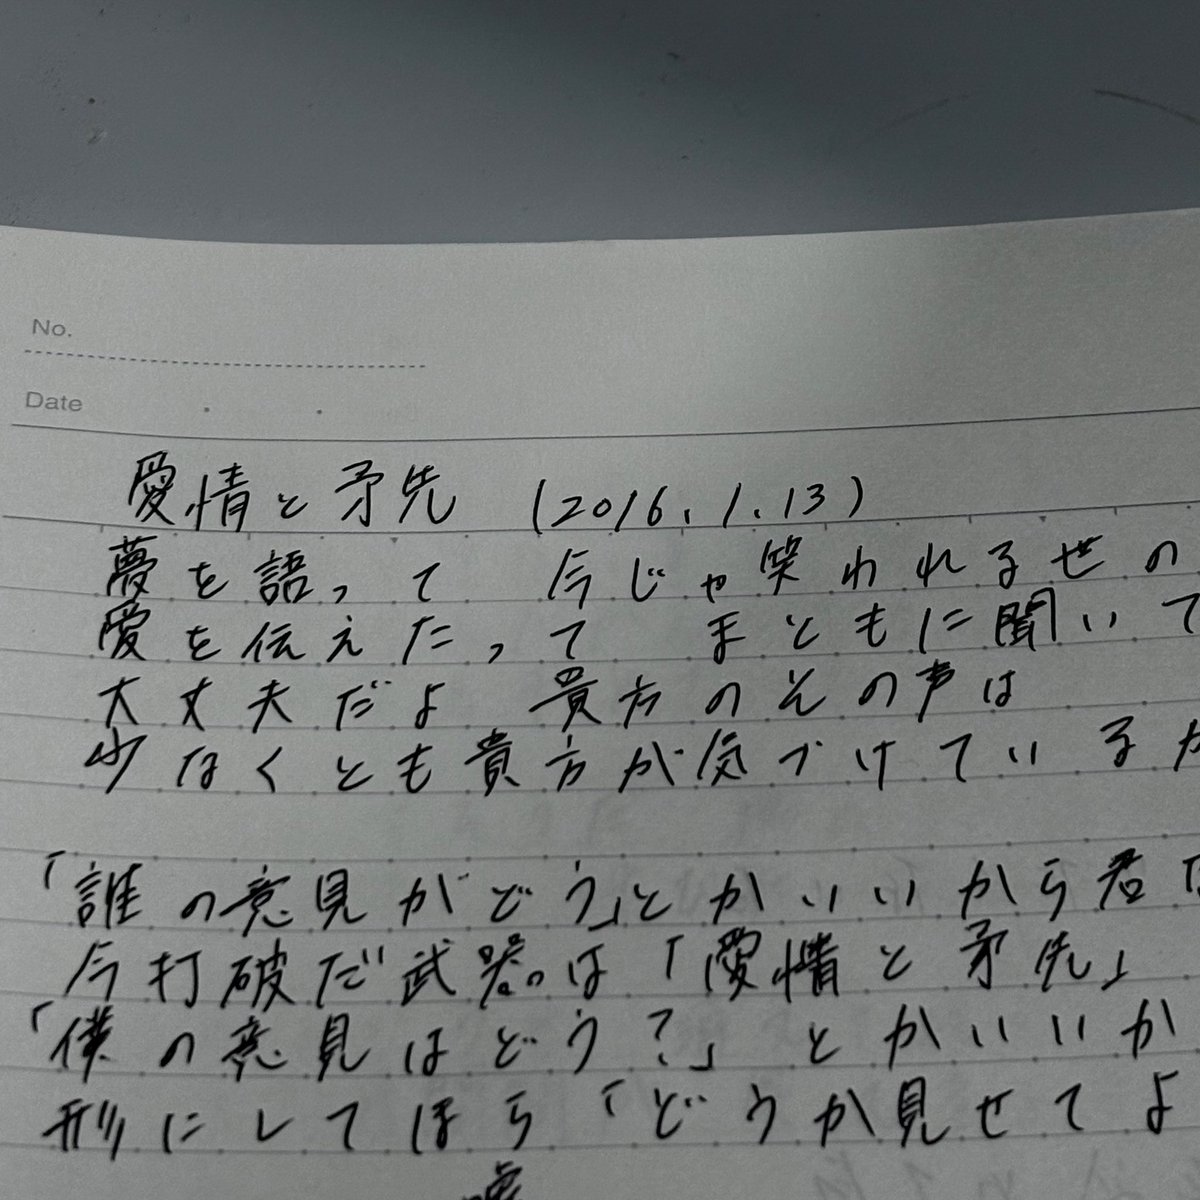 No.
Date
愛情と矛先 (2016.1.13)
夢を語って 今じゃ笑われる世の
愛を伝えたって まともに聞いて
大丈夫だよ 貴方のその声は
少なくとも貴方が気づけているか
「誰の意見がどう」とかいいから君は
今打破だ武器。は「愛情と矛先」
「僕の意見はどう?」とかいいか
形にしてほら「どうか見せてよ